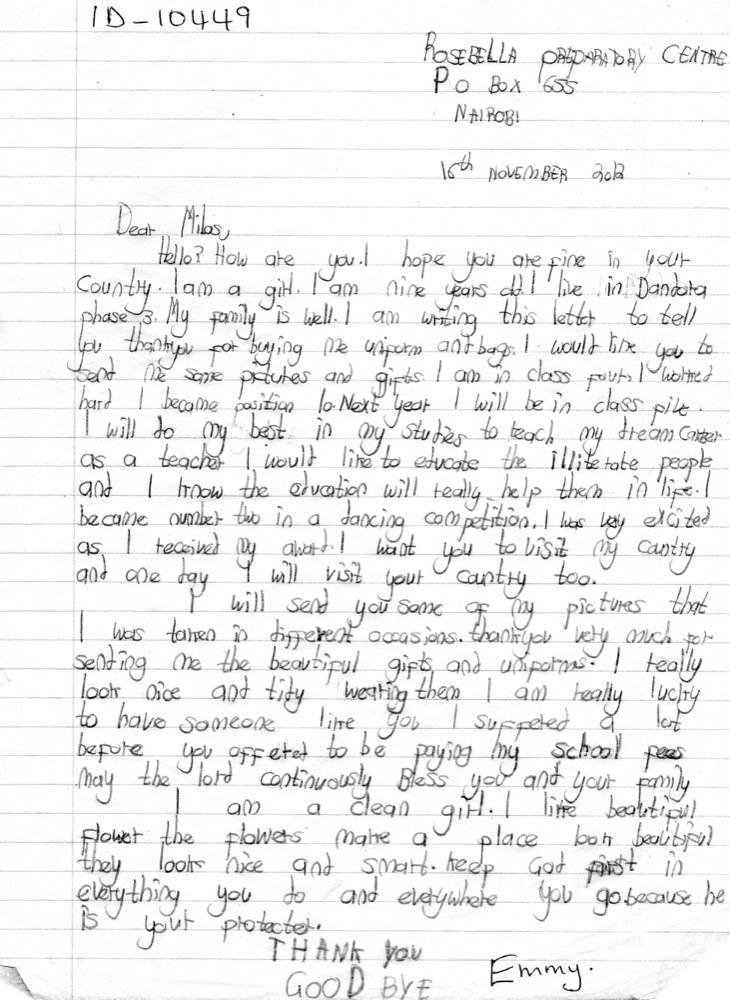 ID-10449
ROSEBELLA PREPARATORY CENTRE
P O BOX 655
NAIROBI
16th NOVEMBER 2012
Dear Milos,
Hello? How are you. I hope you are fine in your
Country. I am a girl. I am nine years old. I live in Dandora
phase 3. My family is well. I am writing this letter to tell
you thankyou for buying me uniform and bags. I would like you to
send me some pictures and gifts. I am in class four. I worked
hard I became position 10. Next year I will be in class five.
I will do my best in my studies to reach my dream career
as a teacher I would like to educate the illiterate people
and I know the education will really help them in life. I
became number two in a dancing competition. I was very excited
as I received my award. I want you to visit my cantry
and one day I will visit your cantry too.
I will send you some of my pictures that
I was taken in different occasions. thankyou very much for
sending me the beautiful gifts and uniforms. I really
look nice and tidy wearing them I am really lucky
to have someone like you I suffered a lot
before you offered to be paying my school fees
may the lord continuously Bless you and your family
I am a clean girl. I like beautiful
flower the flowers make a place look beautiful
they look nice and smart. keep God first in
everything you do and everywhere you go because he
is your protecter.
THANK you
GOOD BYE Emmy.